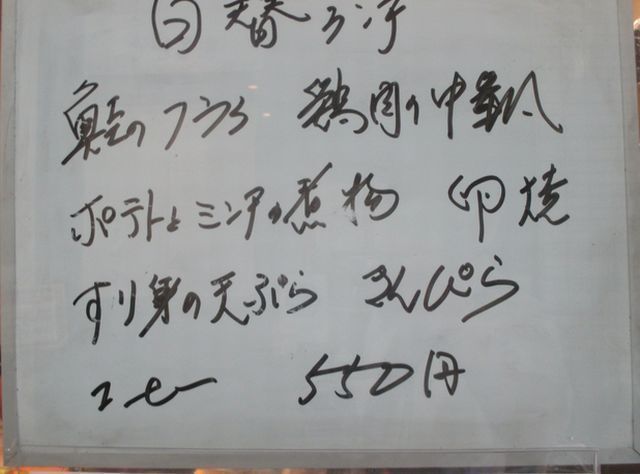 日替ランチ
のフライ 鶏肉の中華風
ポテトとミンチの煮物 卵焼
すり身の天ぷら きんぴら
550円